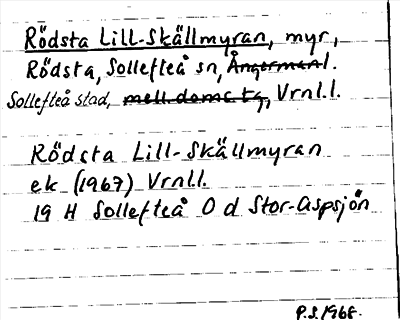 Rödsta Lill-Skällmyran, myr,
Rödsta, Sollefteå sn, Ångermanl.
Sollefteå stad, mell. doms tg, Vrnl.l.
Rödsta Lill-Skällmyran
ek (1967) Vrnl.l.
19 H Sollefteå 0 d Stor-Aspsjön
P.S. 1968.